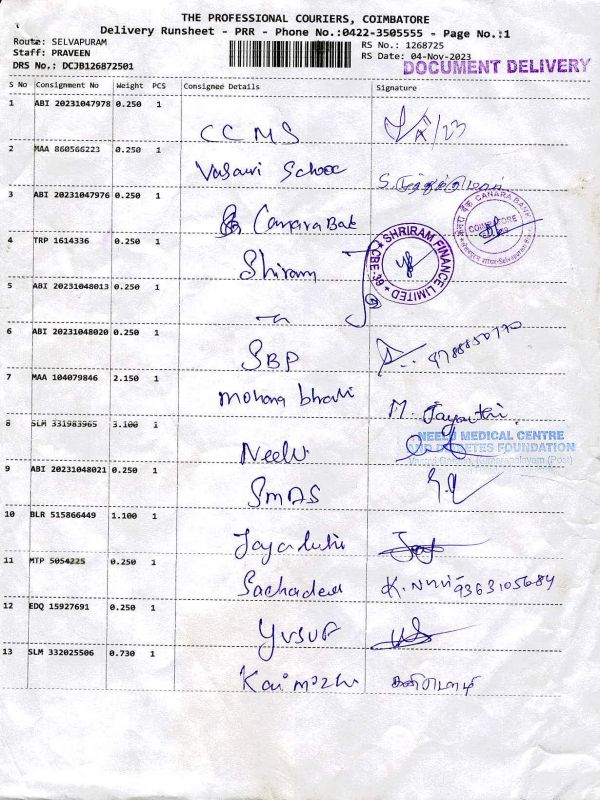 THE PROFESSIONAL COURIERS, COIMBATORE
Delivery Runsheet - PRR - Phone No.:0422-3505555 - Page No.:1
Route: SELVAPURAM
Staff: PRAVEEN
DRS No.: DCJB126872501
RS No.: 1268725
RS Date: 04-Nov-2023
DOCUMENT DELIVERY
S No Consignment No Weight PCS Consignee Details Signature
1 ABI 20231047978 0.250 1
CCMS
2 MAA 860566223 0.250 1
Vasavi School
3 ABI 20231047976 0.250 1
Canara Bak
CANARA BANK
COIMBATORE
4 TRP 1614336 0.250 1
Shriram
SHRIRAM FINANCE LIMITED
CBE-39
5 ABI 20231048013 0.250 1
6 ABI 20231048020 0.250 1
SBP
7 MAA 104079846 2.150 1
mohana bharti
M. Jayanthi.
8 SLM 331983965 3.100 1
Neelu
NEELU MEDICAL CENTRE
AND DIABETES FOUNDATION
9 ABI 20231048021 0.250 1
SMAS
10 BLR 515866449 1.100 1
11 MTP 5054225 0.250 1
9363105684
12 EDQ 15927691 0.250 1
Yusuf
13 SLM 332025506 0.730 1
Kaimozhi